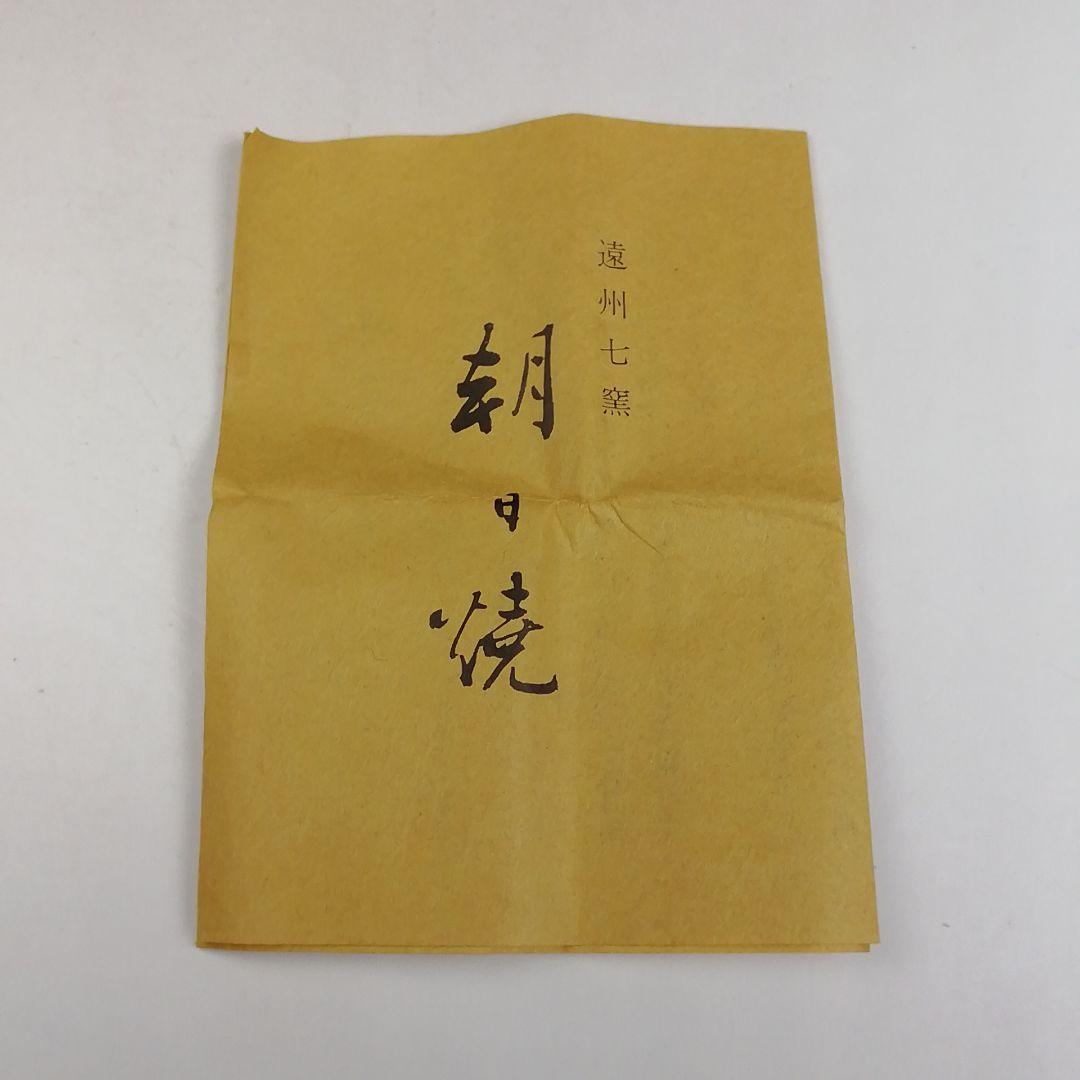 遠州七窯
朝日焼